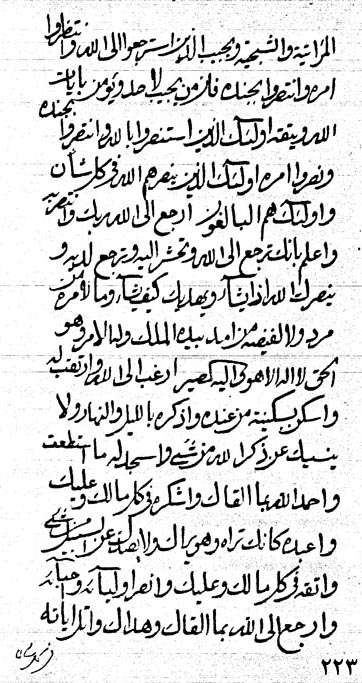 المراتبة والشبحية ويجيب الذين استرجعوا الى الله وانتظروا
امره وانتصروا بجنده فانه من يجيب لاحد ويؤمن بايات
الله ويتقه اولئك الذين استنصروا بالله وانتصروا بجنده
ونصروا امره اولئك الذين ينصرهم الله في كل شأن
واولئك هم الغالبون ارجع الى الله ربك وانتصر به
واعلم بانك ترجع الى الله وتحشر اليه وترجع لديه و
ينصرك الله اذا يشاء ويهديك كيف يشاء وما لامره من
مرد ولا لفيضه من ابد بيده الملك وله الامر وهو
الحق لا اله الا هو واليه المصير ارغب الى الله وارتقب له
واسكن بسكينة من عنده واذكره بالليل والنهار ولا
ينسيك عن ذكر الله من شيء واسجد له ما استطعت
واحمد الله بما القاك واشكره في كل مالك وعليك
واعبده كانك تراه وهو يراك ولا يصدك عن السبيل من شيء
واتقه في كل مالك وعليك وانصر اوليائه واحبائه
وارجع الى الله بما القاك وهداك واتل اياته
٢٢٣